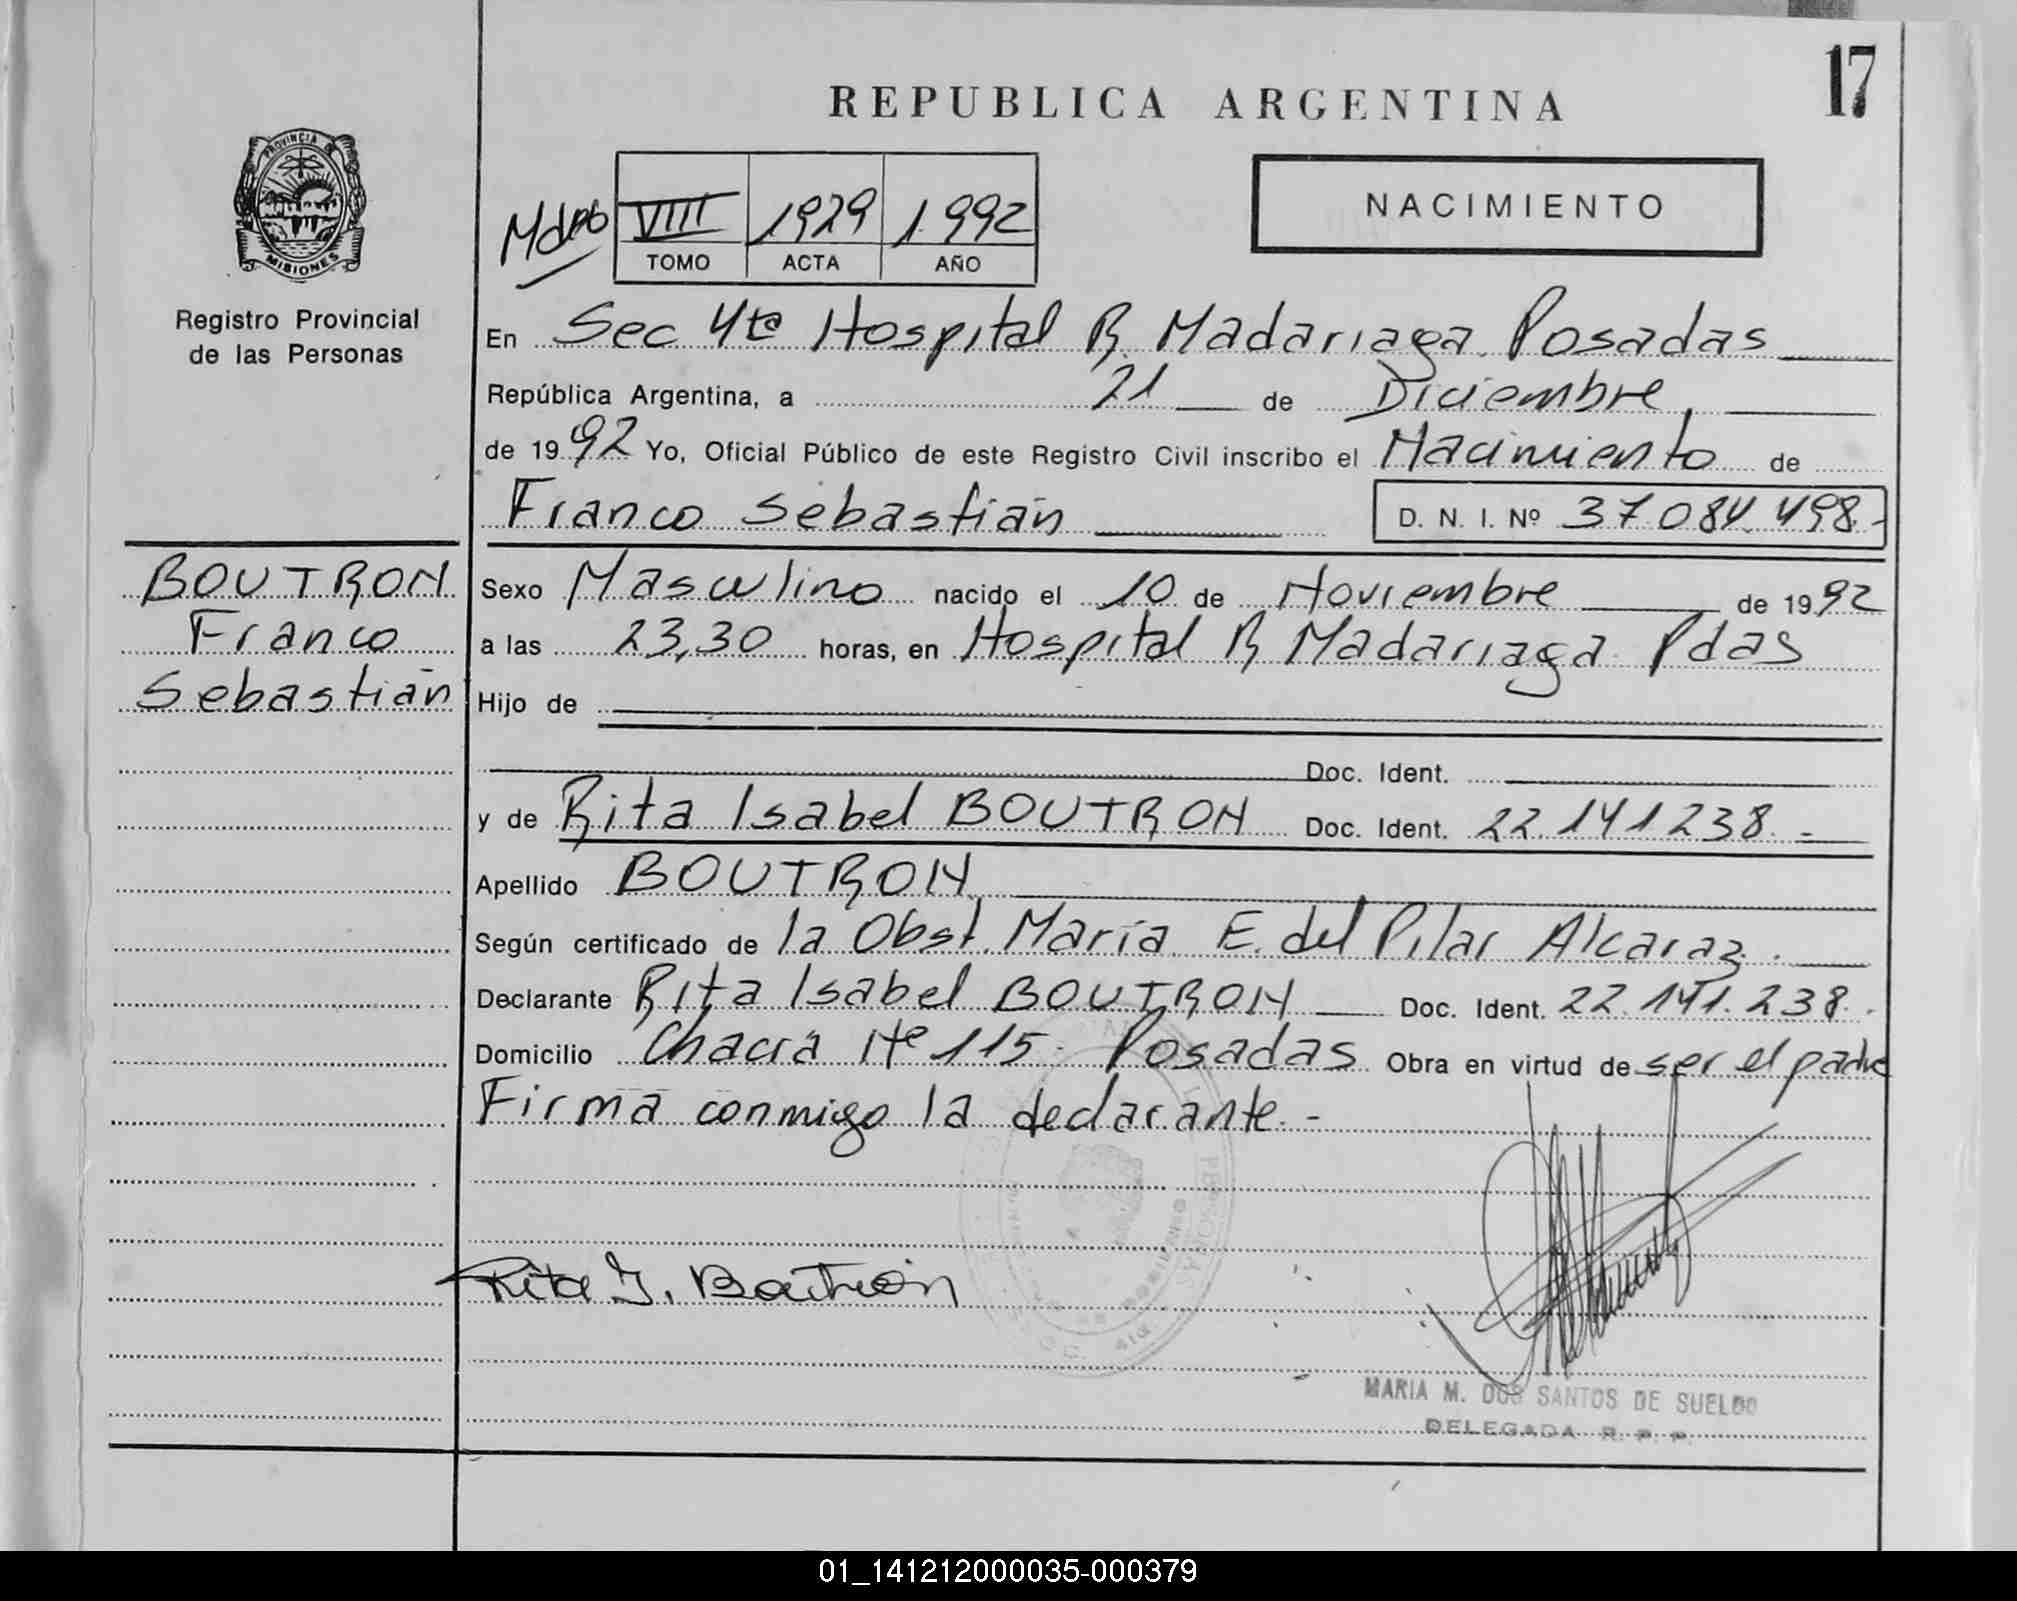 17
REPUBLICA ARGENTINA
PROVINCIA DE
MISIONES
Registro Provincial
de las Personas
VIII 1929 1992
TOMO ACTA AÑO
NACIMIENTO
En Sec 4ta Hospital R. Madariaga. Posadas
República Argentina, a 21 de Diciembre
de 1992 Yo, Oficial Público de este Registro Civil inscribo el Nacimiento de
Franco Sebastián D. N. I. Nº 37.084.498.-
BOUTRON
Franco
Sebastián
Sexo Masculino nacido el 10 de Noviembre de 1992
a las 23,30 horas, en Hospital R Madariaga Pdas
Hijo de
Doc. Ident.
y de Rita Isabel BOUTRON Doc. Ident. 22.141238.-
Apellido BOUTRON
Según certificado de la Obst. María E. del Pilar Alcaraz.
Declarante Rita Isabel BOUTRON Doc. Ident. 22.141.238.
Domicilio Chacra Nº 115. Posadas Obra en virtud de ser el padre
Firma conmigo la declarante.-
Rita I. Boutrón
MARIA M. DOS SANTOS DE SUELDO
DELEGADA R. P. P.
01_141212000035-000379